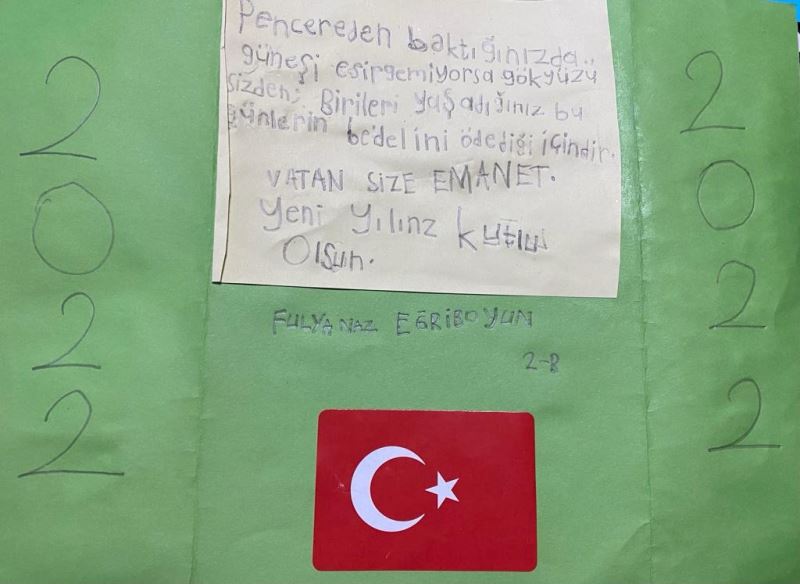 Pencereden baktığınızda..
güneşi esirgemiyorsa gökyüzü
sizden; Birileri yaşadığınız bu
günlerin bedelini ödediği içindir.
VATAN SiZE EMANET.
Yeni Yılınz kutlu
Olsun.
FULYA NAZ EĞRİBOYUN
2-B
2
0
2
2
2
0
2
2